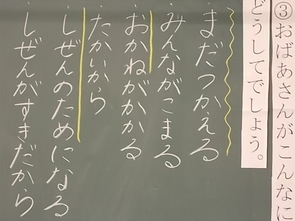 ③おばあさんがこんなに
どうしてでしょう。
まだつかえる
みんながこまる
おかねがかかる
たかいから
しぜんのためになる
しぜんがすきだから